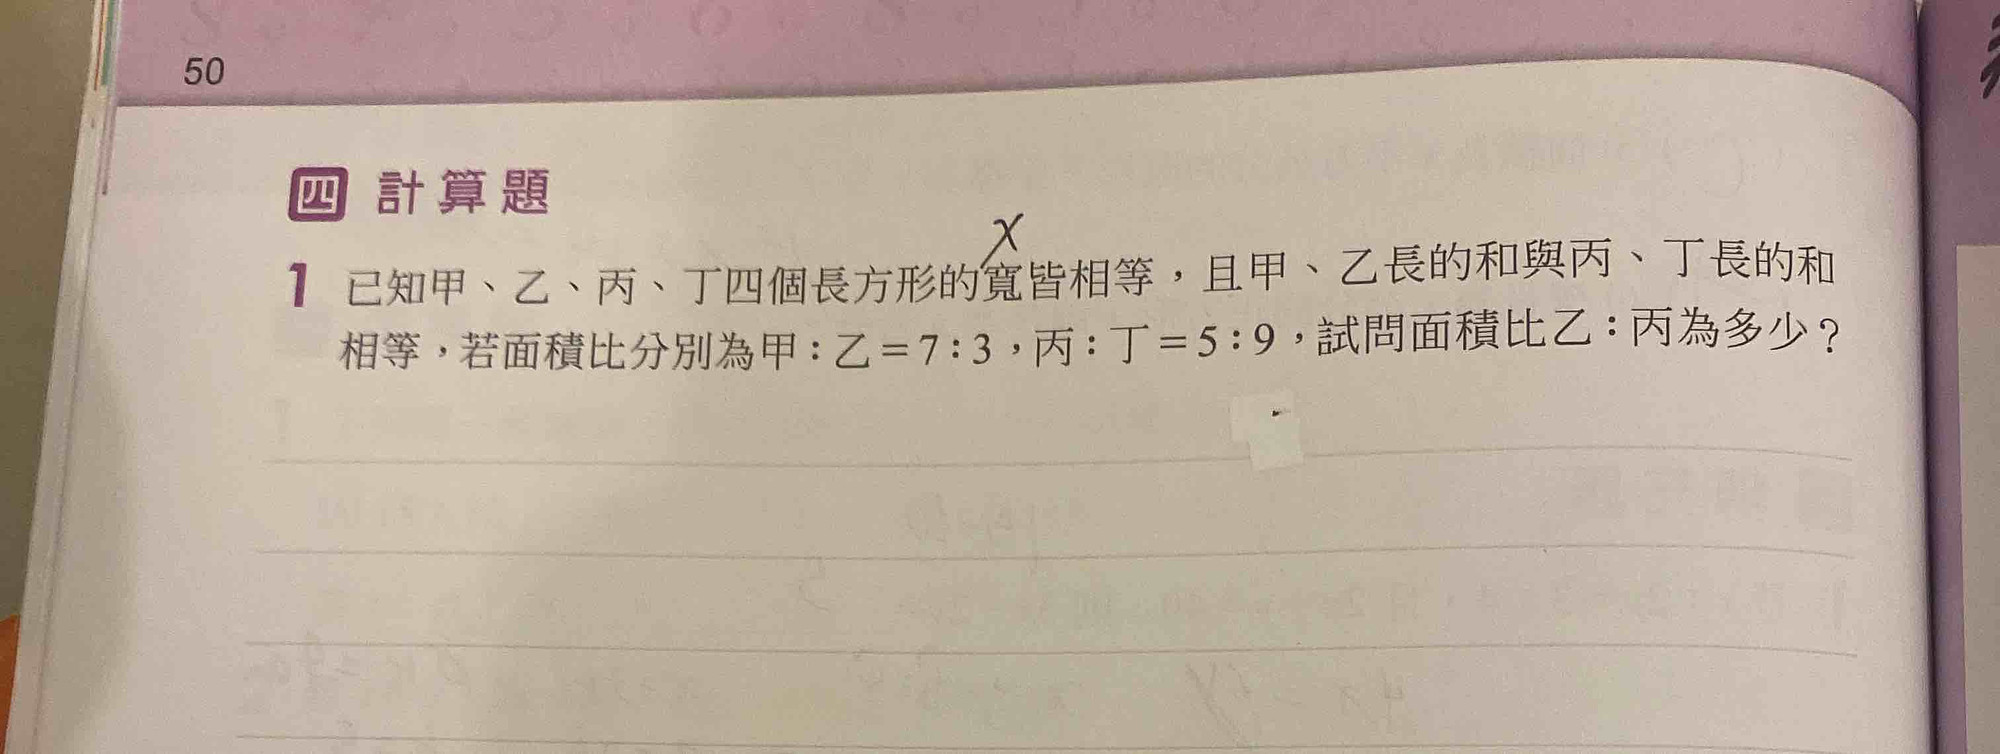 50
四 計算題
x
1 已知甲、乙、丙、丁四個長方形的寬皆相等,且甲、乙長的和與丙、丁長的和
相等,若面積比分別為甲:乙=7:3,丙:丁=5:9,試問面積比乙:丙為多少?